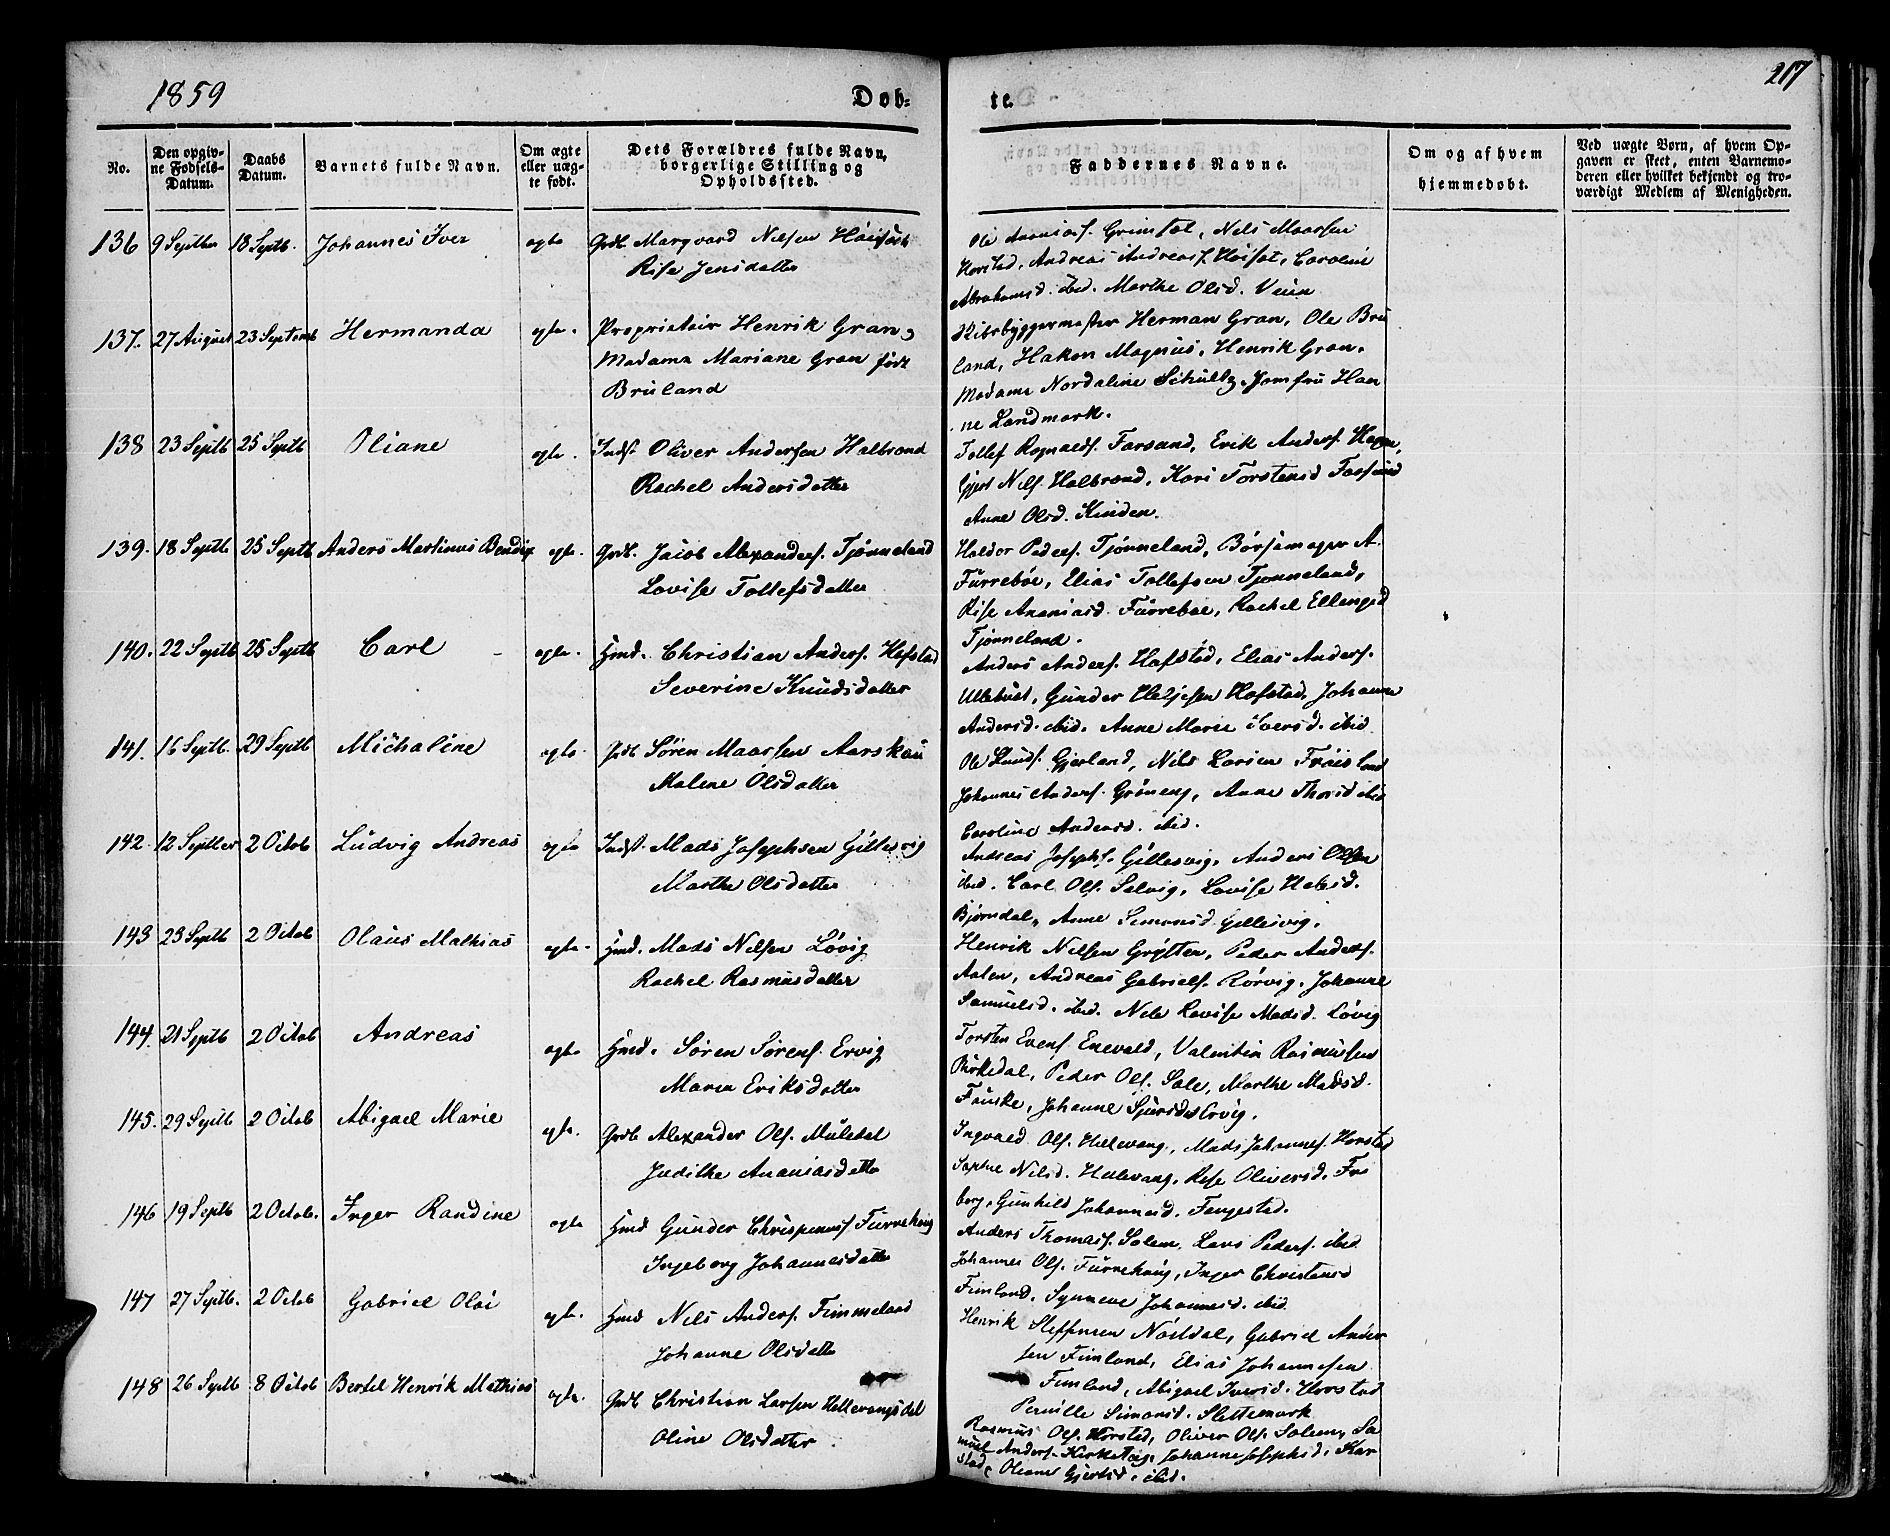 1859
Døb-
te.
217
No.
Den opgiv-
ne Fødsels-
Datum.
Daabs
Datum.
Barnets fulde Navn.
Om ægte
eller uæg-
te født.
Dets Forældres fulde Navn,
borgerlige Stilling og
Opholdssted.
Faddernes Navne.
Om og af hvem
hjemmedøbt.
Ved uægte Børn, af hvem Op-
gaven er skeet, enten Barnemo-
deren eller hvilket bekjendt og tro-
værdigt Medlem af Menigheden.
136 9 Septbr 18 Septb. Johannes Iver ægte Grdb. Marqvard Nilsen
Rise Jensdatter
Ole Ananiasf. Grimstøl, Nils Maassen
Horstad, Andreas Andreasf. Caroline
Abrahamsd. ibid. Marthe Olsd. Veien
137. 27 August 23 Septemb Hermanda ægte. Proprietair Henrik Gran,
Madame Mariane Gran født
Bruland
Skibsbyggermester Herman Gran, Ole Bru
land, Hakon Magnus, Henrik Gran,
Madame Nordaline Schultz, Jomfru Han
ne Landmark.
138 23 Septb 25 Septb Oliane ægte. Indst. Oliver Andersen Halbrend
Rachel Andersdatter
Tollef Rognaldf. Farsund, Erik Andersf. Hagen,
Gjert Nilsf. Halbrend, Kari Torstensd Farsund
Anne Olsd. Kinden.
139. 18 Septb 25 Septb Anders Martinus Bendix ægte. Grdb. Jacob Alexandersf. Tjønneland
Lovise Tollefsdatter
Haldor Pedersf. Tjønneland, Børsemager A.
Furrebøe, Elias Tollefsen Tjønneland,
Rise Ananiasd. Furrebøe, Rachel Ellingsd
Tjønneland.
140. 22 Septb 25 Septb Carl - ægte. Hmd. Christian Andersf. Hafstad
Severine Knudsdatter
Anders Andersf. Hafstad, Elias Andersf.
Ullebust, Gunder Helgesen Hafstad, Johanne
Andersd. ibid. Anne Marie Iversd. ibid
141. 16 Septb. 29 Septb Michaline ægte. Grdb Søren Maassen Aarskou
Malene Olsdatter
Ole Knudsf. Gjerland, Nils Larsen Frøisland
Johannes Andersf. Grøneng, Anne Thorsd ibid
Caroline Andersd. ibid.
142. 12 Septber 2 Octob Ludvig Andreas ægte Indst. Mads Josephsen Gillesvig
Marthe Olsdatter
Andreas Josephf. Gillesvig, Anders Olsen
ibid. Carl Olsf. Solvig, Lovise
Bjørndal, Anne Simonsd. Gillesvig.
143 23 Septb 2 Octob Olaus Mathias ægte. Hmd. Mads Nilsen Løvig
Rachel Rasmusdatter
Henrik Nilsen Grytten, Peder Andersf.
Aalen, Andreas Gabrielsf. Rørvig, Johanne
Samuelsd. ibid. Nele Lovise Madsd. Løvig
144. 21 Septb 2 Octob Andreas ægte Hmd. Søren Sørensf. Ervig
Maren Eriksdatter
Torsten Evensf. Enevald, Valentin Rasmussen
Birkedal, Peder Olsf. Sole, Marthe Madsd.
Fauske, Johanne Sjursd Ervig.
145. 29 Septb 2 Octob Abigael Marie ægte. Grdb Alexander Olsf. Muledal
Judithe Ananiasdatte
Ingvald Olsf. Hellevang, Mads Johannesf. Horstad
Sophie Nilsd. Hellevang, Rise Oliversd. Fri
borg, Gunhild Johannesd. Fengestad.
146 19 Septb 2 Octob. Inger Randine ægte Hmd Gunder Chrispinusf. Furrehaug
Ingeborg Johannesdatter
Anders Thomasf. Solem, Lars Pedersf. ibid
Johannes Olsf. Furrehaug, Inger Christensd
Fimland, Synneve Johannesd. ibid
147 27 Septb. 2 Octob Gabriel Olai ægte. Hmd Nils Andersf. Fimmeland
Johanne Olsdatter
Henrik Steffensen Nøsdal, Gabriel Ander
sen Fimland, Elias Johannesen
Fimland, Abigael Iversd. Horstad
Pernille Simonsd. Slettemark
148 26 Septb 8 Octob Bertel Henrik Mathias ægte. Grdb Christian Larsen Hellevangsdal
Oline Olsdatter.
Rasmus Olsf. Horstad, Oliver Olsf. Solem, Sa
muel Andersf. Johanne Josephsd. Kar
stad, Oliane Gjertsd. ibid.